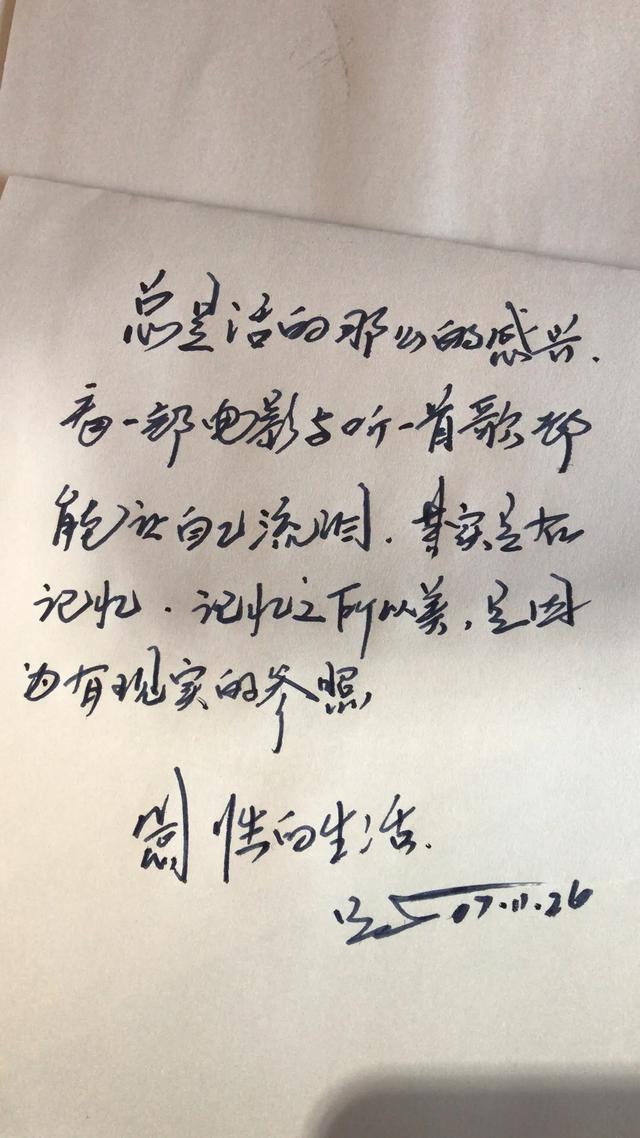 总是活的那么的感兴.
看一部电影与听一首歌都
能让自己流泪.其实是在
记忆.记忆之所以美,是因
为有现实的参照
性的生活.
07.11.26